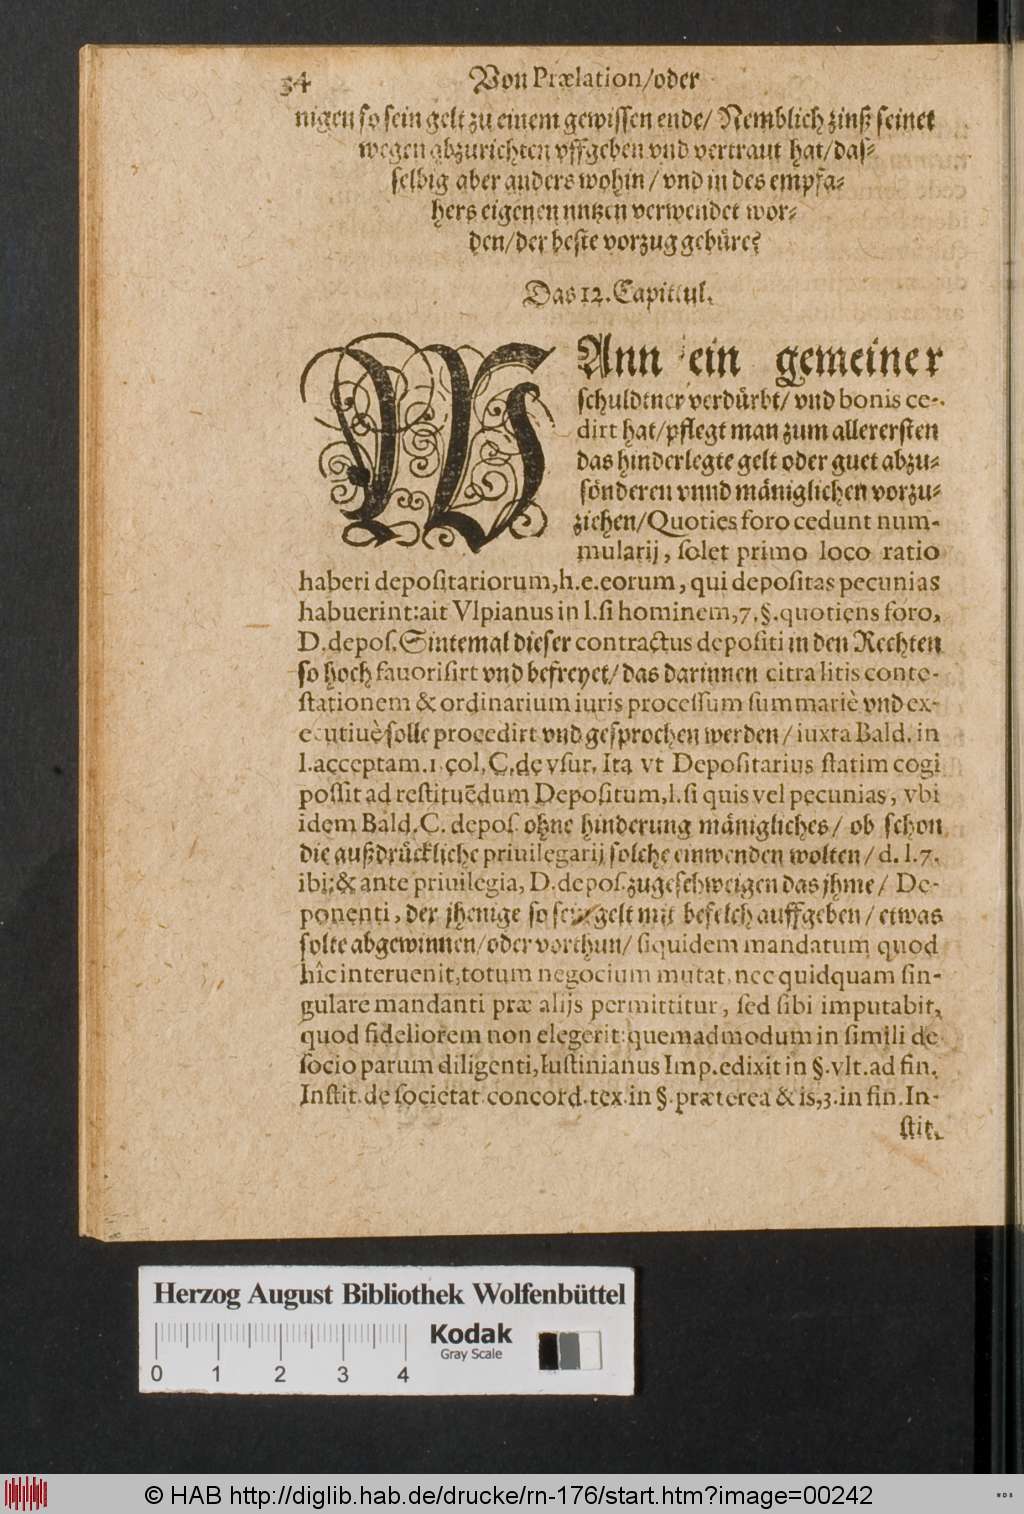 34 Von Prælation/oder
nigen so sein gelt zu einem gewissen ende/ Nemblich zinß seinet
wegen abzurichten vffgeben vnd vertraut hat/das-
selbig aber anders wohin/vnd in des empfa-
hers eigenen nutzen verwendet wor-
den/der beste vorzug gebüre?
Das 12. Capittul.
WAnn ein gemeiner
schuldener verdürbt/ vnd bonis ce-
dirt hat/pflegt man zum allerersten
das hinderlegte gelt oder guet abzu-
sönderen vnnd mäniglichen vorzu-
ziehen/Quoties foro cedunt num-
mularij, solet primo loco ratio
haberi depositariorum,h.e.eorum, qui depositas pecunias
habuerint:ait Vlpianus in l.si hominem,7.§.quotiens foro,
D.depos.Sintemal dieser contractus depositi in den Rechten
so hoch fauorisirt vnd befreyet/das darinnen citra litis conte-
stationem & ordinarium iuris processum summariè vnd ex-
ecutiuè solle procedirt vnd gesprochen werden/iuxta Bald. in
l.acceptam.1.col,C.de vsur. Ita vt Depositarius statim cogi
possit ad restituēdum Depositum,l.si quis vel pecunias, vbi
idem Bald.C. depos. ohne hinderung mänigliches/ ob schon
die außdrückliche priuilegarij solche einwenden wolten/ d. l.7.
ibi:& ante priuilegia, D.depos.zugeschweigen das jhme/ De-
ponenti, der jhenige so sein gelt mit befelch auffgeben/ etwas
solte abgewinnen/oder vorthun/ siquidem mandatum quod
hîc interuenit,totum negocium mutat, nec quidquam sin-
gulare mandanti præ alijs permittitur, sed sibi imputabit,
quod fideliorem non elegerit:quemadmodum in simili de
socio parum diligenti,Iustinianus Imp.edixit in §.vlt.ad fin.
Instit.de societat.concord.tex.in §.præterea & is,3.in fin.In-
stit.
Herzog August Bibliothek Wolfenbüttel
Kodak
Gray Scale
0 1 2 3 4
© HAB http://diglib.hab.de/drucke/rn-176/start.htm?image=00242